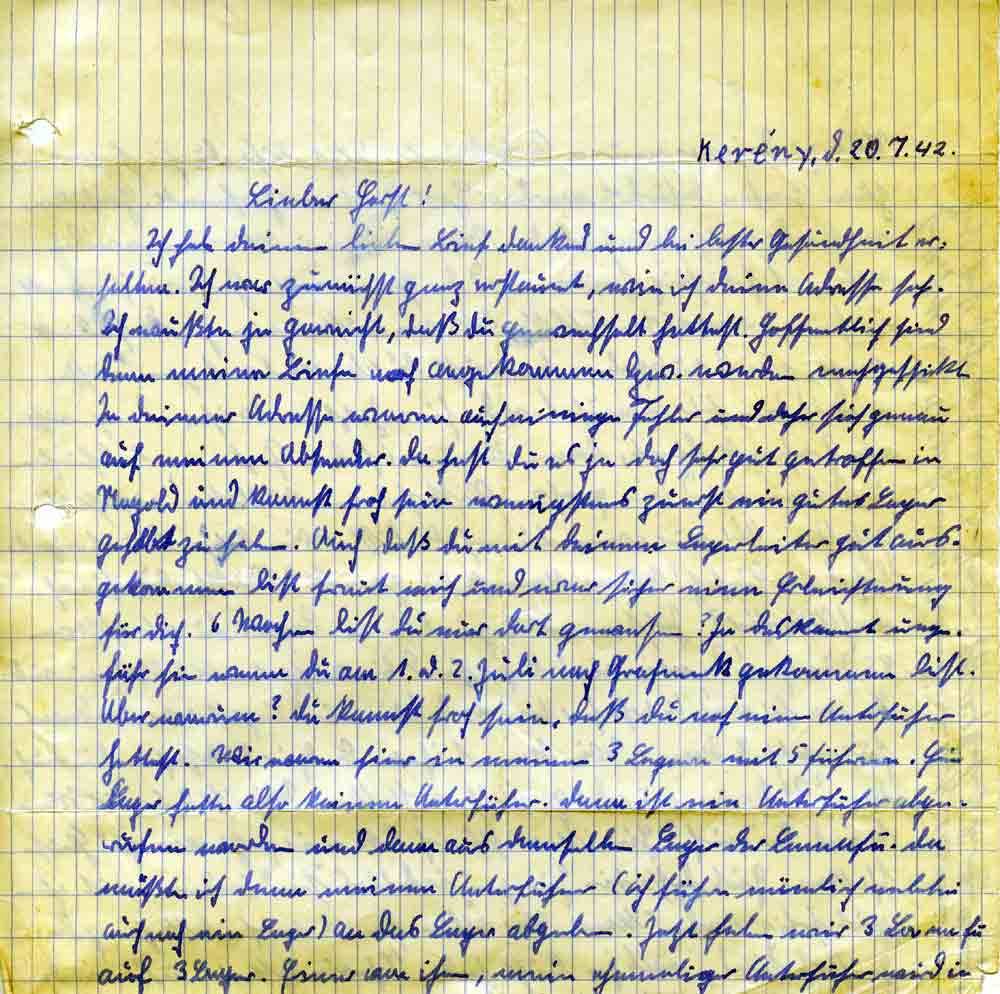 Kerény, d. 20.7.42.
Lieber Horst!
Ich habe deinen lieben Brief dankend und bei bester Gesundheit er-
halten. Ich war zunächst ganz erstaunt, wie ich deine Adresse sah.
Ich wußte ja garnicht, daß du gewechselt hattest. Hoffentlich sind
denn meine Briefe noch angekommen bzw. werden nachgeschikt
In deiner Adresse waren auch einige Fehler und daher sieh genau
auf meinen Absender. Da hast du es ja doch sehr gut getroffen in
Nagold und kannst froh sein wenigstens zuerst ein gutes Lager
gehabt zu haben. Auch daß du mit deinem Lagerleiter gut aus-
gekommen bist freut mich und war sicher eine Erleichterung
für dich. 6 Wochen bist du nur dort gewesen? Ja das kommt unge-
fähr hin wenn du am 1. o. 2. Juli nach Grafeneck gekommen bist.
Aber warum? du kannst froh sein, daß du noch einen Unterführer
hattest. Wir waren hier in meinen 3 Lagern mit 5 Führern. Ein
Lager hatte also keinen Unterführer. Dann ist ein Unterführer abge-
rufen worden und dann aus demselben Lager der Lamafü. Da
mußte ich dann meinen Unterführer (ich führe nämlich nebenbei
auch noch ein Lager) an das Lager abgeben. Jetzt haben wir 3 Lamafü
auf 3 Lager. Einer von ihnen, mein ehemaliger Unterführer wird in